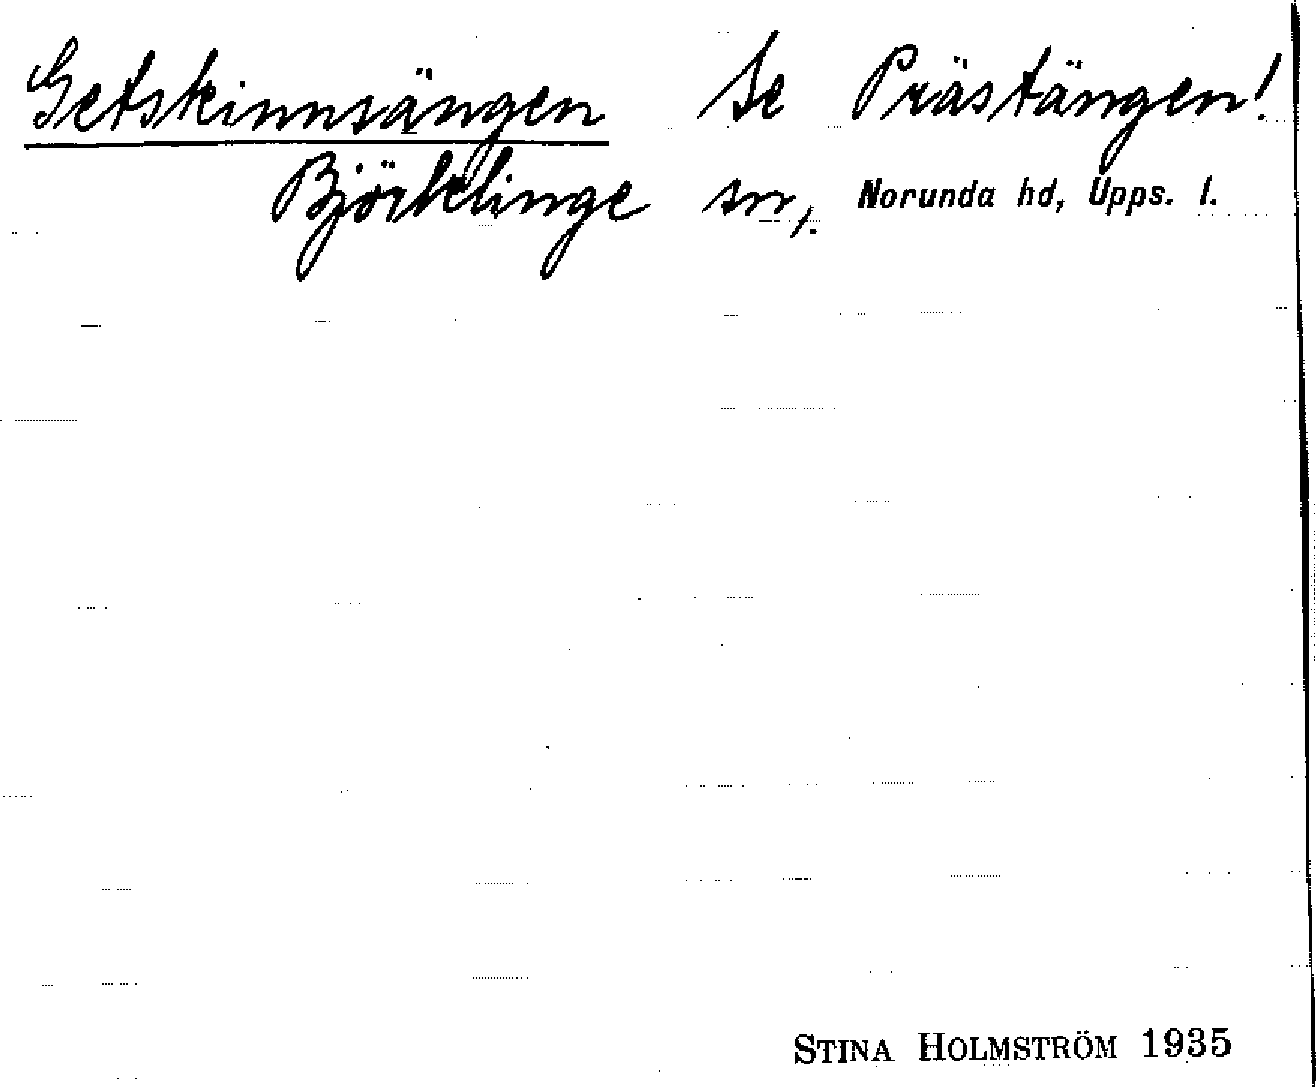 Getskinnsängen Se Prästängen!
Björklinge sn, Norunda hd, Upps. l.
STINA HOLMSTRÖM 1935